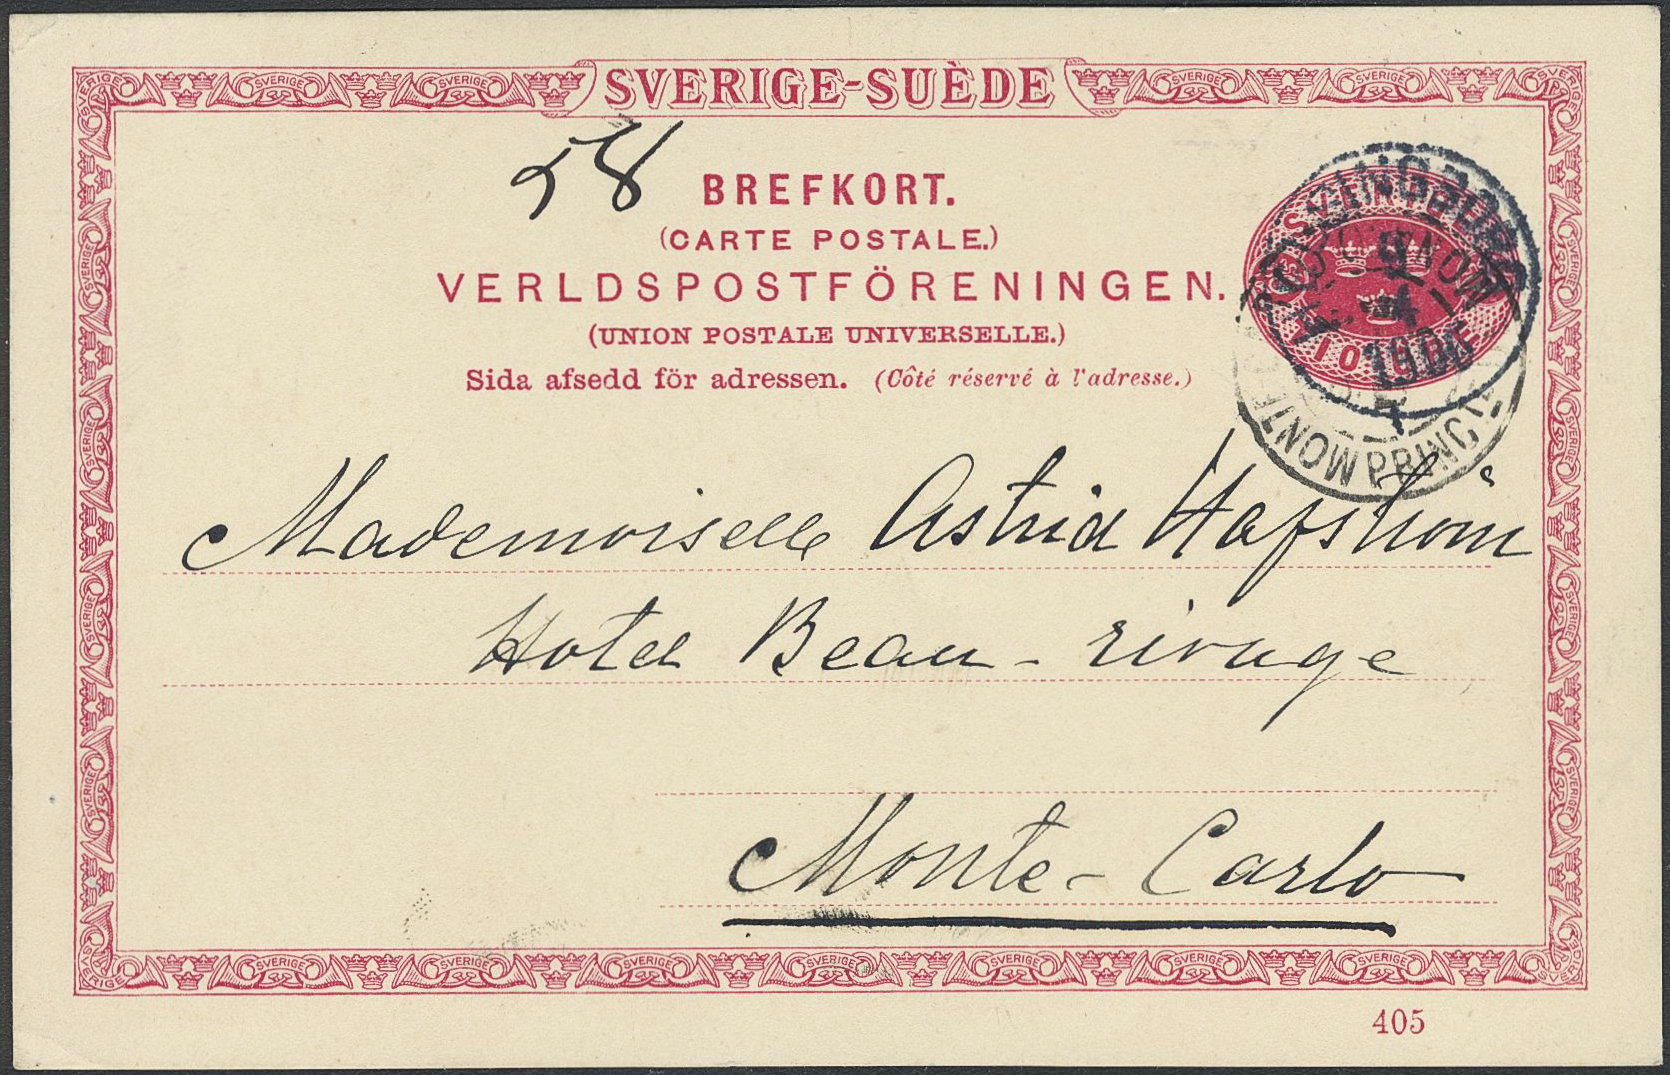 SVERIGE-SUÈDE
58
BREFKORT.
(CARTE POSTALE.)
VERLDSPOSTFÖRENINGEN.
(UNION POSTALE UNIVERSELLE.)
Sida afsedd för adressen. (Côté réservé à l'adresse.)
10
1900
Mademoiselle Astrid Hafström
Hotel Beau-rivage
Monte-Carlo
405